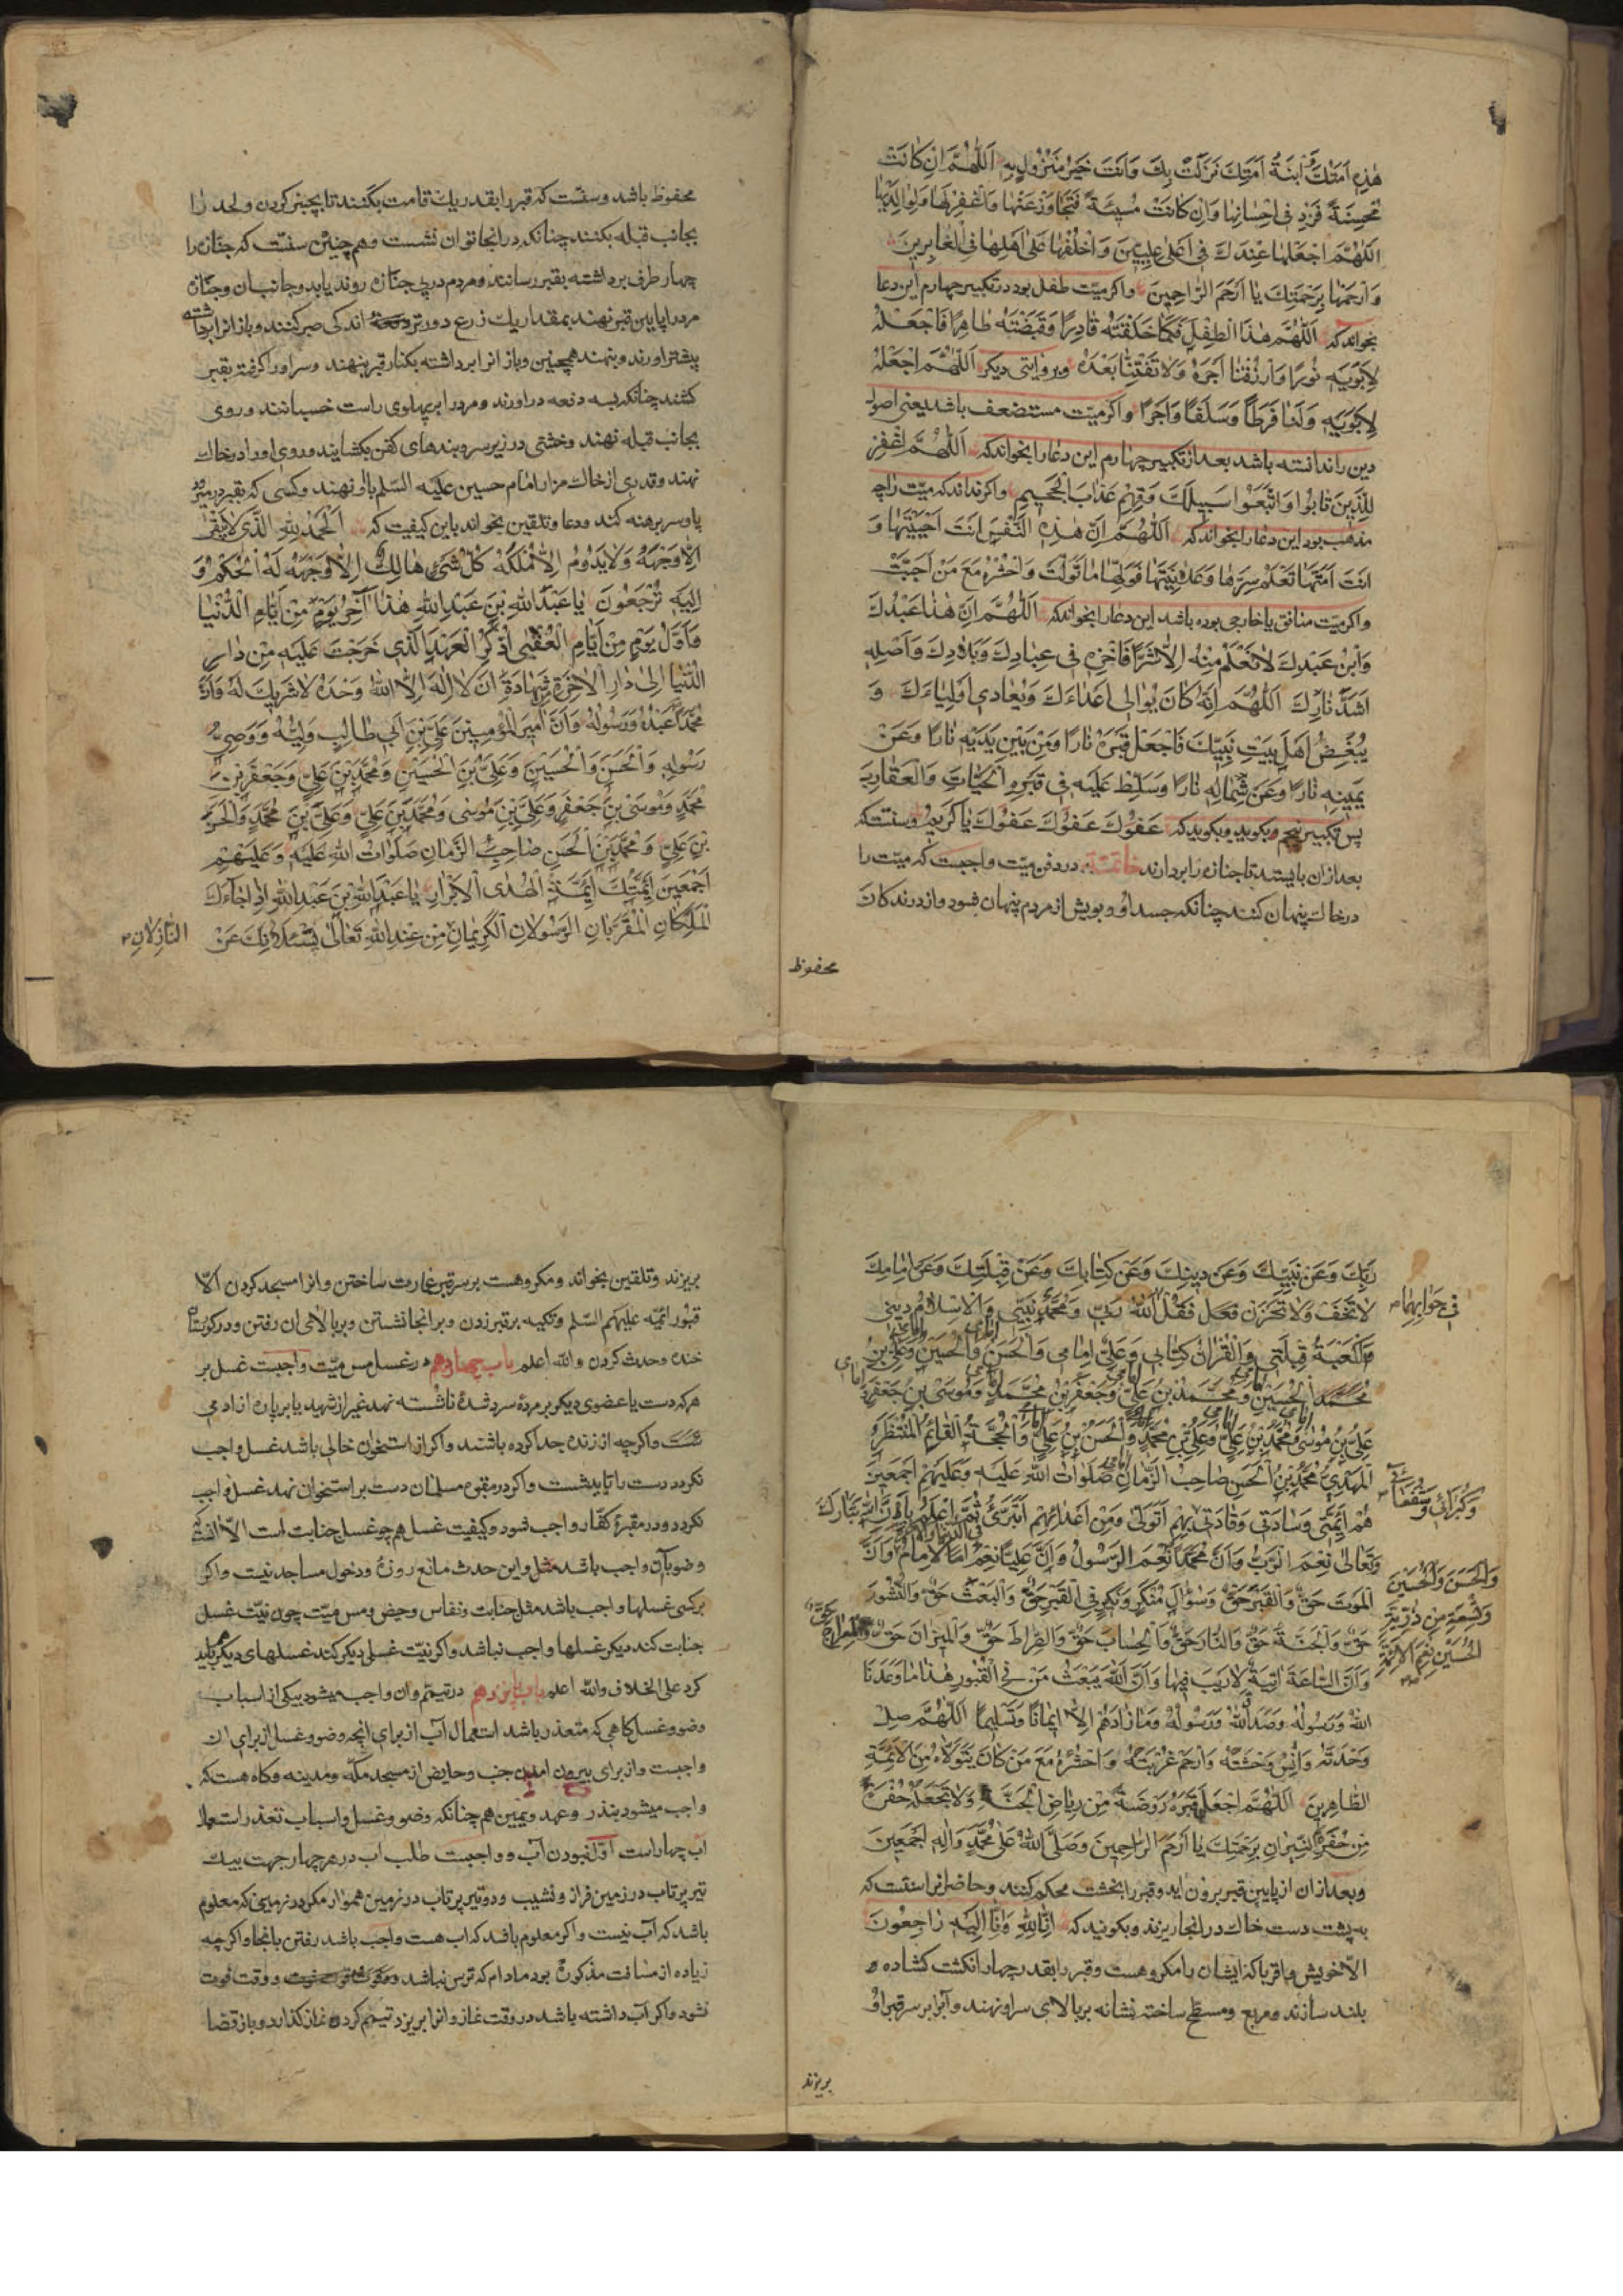 هٰذِهِ اَمَتُكَ وَابْنَةُ اَمَتِكَ نَزَلَتْ بِكَ وَاَنْتَ خَيْرُ مَنْزُولٍ بِهِ اَللّٰهُمَّ اِنْ كَانَتْ
مُحْسِنَةً فَزِدْ فِى اِحْسَانِهَا وَاِنْ كَانَتْ مُسِيئَةً فَتَجَاوَزْ عَنْهَا وَاغْفِرْ لَهَا وَلِوَالِدَيْهَا
اَللّٰهُمَّ اجْعَلْهَا عِنْدَكَ فِى اَعْلىٰ عِلِّيِّينَ وَاخْلُفْهَا عَلىٰ اَهْلِهَا فِى الْغَابِرِينَ
وَارْحَمْهَا بِرَحْمَتِكَ يَا اَرْحَمَ الرَّاحِمِينَ واكر ميّت طفل بود در تكبير چهارم اين دعا
بخواند كه اَللّٰهُمَّ هٰذَا الطِّفْلَ كَمَا خَلَقْتَهُ قَادِرًا وَقَبَضْتَهُ طَاهِرًا فَاجْعَلْهُ
لِاَبَوَيْهِ نُورًا وَارْزُقْنَا اَجْرَهُ وَلَا تَفْتِنَّا بَعْدَهُ وبروايتى ديكر اَللّٰهُمَّ اجْعَلْهُ
لِاَبَوَيْهِ وَلَنَا فَرَطًا وَسَلَفًا وَاَجْرًا واكر ميّت مستضعف باشد يعنى اصول
دين را ندانسته باشد بعد از تكبير چهارم اين دعا را بخواند كه اَللّٰهُمَّ اغْفِرْ
لِلَّذِينَ تَابُوا وَاتَّبَعُوا سَبِيلَكَ وَقِهِمْ عَذَابَ الْجَحِيمِ واكر نداند كه ميّت را چه
مذهب بود اين دعا را بخواند كه اَللّٰهُمَّ اِنَّ هٰذِهِ النَّفْسَ اَنْتَ اَحْيَيْتَهَا وَ
اَنْتَ اَمَتَّهَا تَعْلَمُ سِرَّهَا وَعَلَانِيَتَهَا فَوَلِّهَا مَا تَوَلَّتْ وَاحْشُرْهَا مَعَ مَنْ اَحَبَّتْ
واكر ميّت منافق يا خارجى بوده باشد اين دعا را بخواند كه اَللّٰهُمَّ اِنَّ هٰذَا عَبْدُكَ
وَابْنُ عَبْدِكَ لَا نَعْلَمُ مِنْهُ اِلَّا شَرًّا فَاخْزِهِ فِى عِبَادِكَ وَبِلَادِكَ وَاَصْلِهِ
اَشَدَّ نَارِكَ اَللّٰهُمَّ اِنَّهُ كَانَ يُوَالِى اَعْدَاءَكَ وَيُعَادِى اَوْلِيَاءَكَ وَ
يُبْغِضُ اَهْلَ بَيْتِ نَبِيِّكَ فَاجْعَلْ قَبْرَهُ نَارًا وَمِنْ بَيْنِ يَدَيْهِ نَارًا وَعَنْ
يَمِينِهِ نَارًا وَعَنْ شِمَالِهِ نَارًا وَسَلِّطْ عَلَيْهِ فِى قَبْرِهِ الْحَيَّاتِ وَالْعَقَارِبَ
پس تكبير پنجم بكويد وبكويد كه عَفْوَكَ عَفْوَكَ عَفْوَكَ يَا كَرِيمُ وسنّتست كه
بعد از ان بايستد تا جنازه را بردارند خاتمه در دفن ميّت واجبست كه ميّت را
در خاك پنهان كنند چنانكه جسد او وبويش از مردم پنهان شود واز درندكان
محفوظ
محفوظ باشد وسنّت كه قبر را بقدر يك قامت بكنند تا بچنبر كردن ولحد را
بجانب قبله بكنند چنانكه در انجا توان نشست وهم چنين سنّت كه جنازه را
چهار طرف برداشته بقبر رسانند ومردم در پى جنازه روند يا بدو جانب ان وجنازه
مرد را پايين قبر نهند بمقدار يك ذرع دورتر اندكى صبر كنند وباز انرا برداشته
پيشتر اورند وبنهند همچنين وباز انرا برداشته بكنار قبر بنهند وسر او را كرفته بقبر
كشند چنانكه بسه دفعه در اورند ومرد را بر پهلوى راست خسبانند وروى
بجانب قبله نهند وخشتى در زير سر وبندهاى كفن بكشايند وروى او را در خاك
نهند وقدرى از خاك مزار امام حسين عليه السّلم با او نهند وكسى كه بقبر در ميرود
پا وسر برهنه كند ودعا وتلقين بخواند باين كيفيت كه اَلْحَمْدُ لِلّٰهِ الَّذِى لَا يَبْقىٰ
اِلَّا وَجْهُهُ وَلَا يَدُومُ اِلَّا مُلْكُهُ كُلُّ شَىْءٍ هَالِكٌ اِلَّا وَجْهَهُ لَهُ الْحُكْمُ وَ
اِلَيْهِ تُرْجَعُونَ يَا عَبْدَ اللّٰهِ بْنَ عَبْدِ اللّٰهِ هٰذَا آخِرُ يَوْمٍ مِنْ اَيَّامِ الدُّنْيَا
وَاَوَّلُ يَوْمٍ مِنْ اَيَّامِ الْعُقْبىٰ اُذْكُرِ الْعَهْدَ الَّذِى خَرَجْتَ عَلَيْهِ مِنْ دَارِ
الدُّنْيَا اِلىٰ دَارِ الْاٰخِرَةِ شَهَادَةَ اَنْ لَا اِلٰهَ اِلَّا اللّٰهُ وَحْدَهُ لَا شَرِيكَ لَهُ وَاَنَّ
مُحَمَّدًا عَبْدُهُ وَرَسُولُهُ وَاَنَّ اَمِيرَ الْمُؤْمِنِينَ عَلِىَّ بْنَ اَبِى طَالِبٍ وَلِيُّهُ وَوَصِىُّ
رَسُولِهِ وَالْحَسَنَ وَالْحُسَيْنَ وَعَلِىَّ بْنَ الْحُسَيْنِ وَمُحَمَّدَ بْنَ عَلِىٍّ وَجَعْفَرَ بْنَ
مُحَمَّدٍ وَمُوسَى بْنَ جَعْفَرٍ وَعَلِىَّ بْنَ مُوسىٰ وَمُحَمَّدَ بْنَ عَلِىٍّ وَعَلِىَّ بْنَ مُحَمَّدٍ وَالْحَسَنَ
بْنَ عَلِىٍّ وَمُحَمَّدَ بْنَ الْحَسَنِ صَاحِبَ الزَّمَانِ صَلَوَاتُ اللّٰهِ عَلَيْهِ وَعَلَيْهِمْ
اَجْمَعِينَ اَئِمَّتُكَ اَئِمَّةُ الْهُدَى الْاَبْرَارِ يَا عَبْدَ اللّٰهِ بْنَ عَبْدِ اللّٰهِ اِذَا جَاءَكَ
الْمَلَكَانِ الْمُقَرَّبَانِ الرَّسُولَانِ الْكَرِيمَانِ مِنْ عِنْدِ اللّٰهِ تَعَالىٰ يَسْئَلَانِكَ عَنْ
النَّازِلَانِ
رَبِّكَ وَعَنْ نَبِيِّكَ وَعَنْ دِينِكَ وَعَنْ كِتَابِكَ وَعَنْ قِبْلَتِكَ وَعَنْ اِمَامِكَ
لَا تَخَفْ وَلَا تَحْزَنْ فَقُلْ اَللّٰهُ رَبِّى وَمُحَمَّدٌ نَبِيِّى وَالْاِسْلَامُ دِينِى
فِى جَوَابِهِمَا
وَالْكَعْبَةُ قِبْلَتِى وَالْقُرْاٰنُ كِتَابِى وَعَلِىٌّ اِمَامِى وَالْحَسَنُ وَالْحُسَيْنُ وَعَلِىُّ بْنُ
الْحُسَيْنِ وَمُحَمَّدُ بْنُ عَلِىٍّ وَجَعْفَرُ بْنُ مُحَمَّدٍ وَمُوسَى بْنُ جَعْفَرٍ
عَلِىُّ بْنُ مُوسىٰ وَمُحَمَّدُ بْنُ عَلِىٍّ وَعَلِىُّ بْنُ مُحَمَّدٍ وَالْحَسَنُ بْنُ عَلِىٍّ وَالْحُجَّةُ الْقَائِمُ الْمُنْتَظَرُ
الْمَهْدِىُّ مُحَمَّدُ بْنُ الْحَسَنِ صَاحِبُ الزَّمَانِ صَلَوَاتُ اللّٰهِ عَلَيْهِ وَعَلَيْهِمْ اَجْمَعِينَ
هُمْ اَئِمَّتِى وَسَادَتِى وَقَادَتِى بِهِمْ اَتَوَلّىٰ وَمِنْ اَعْدَائِهِمْ اَتَبَرَّئُ ثُمَّ اعْلَمْ اَنَّ اللّٰهَ تَبَارَكَ
وَكُبَرَائِى وَشُفَعَائِى
وَتَعَالىٰ نِعْمَ الرَّبُّ وَاَنَّ مُحَمَّدًا نِعْمَ الرَّسُولُ وَاَنَّ عَلِيًّا نِعْمَ الْاِمَامُ وَاَنَّ
وَالْحَسَنَ وَالْحُسَيْنَ
وَتِسْعَةً مِنْ ذُرِّيَّةِ
الْحُسَيْنِ نِعْمَ الْاَئِمَّةُ
الْمَوْتَ حَقٌّ وَالْقَبْرَ حَقٌّ وَسُؤَالَ مُنْكَرٍ وَنَكِيرٍ فِى الْقَبْرِ حَقٌّ وَالْبَعْثَ حَقٌّ وَالنُّشُورَ
حَقٌّ وَالْجَنَّةَ حَقٌّ وَالنَّارَ حَقٌّ وَالْحِسَابَ حَقٌّ وَالصِّرَاطَ حَقٌّ وَالْمِيزَانَ حَقٌّ
وَاَنَّ السَّاعَةَ اٰتِيَةٌ لَا رَيْبَ فِيهَا وَاَنَّ اللّٰهَ يَبْعَثُ مَنْ فِى الْقُبُورِ هٰذَا مَا وَعَدَنَا
اللّٰهُ وَرَسُولُهُ وَصَدَقَ اللّٰهُ وَرَسُولُهُ وَمَا زَادَهُمْ اِلَّا اِيمَانًا وَتَسْلِيمًا اَللّٰهُمَّ صِلْ
وَحْدَتَهُ وَاٰنِسْ وَحْشَتَهُ وَارْحَمْ غُرْبَتَهُ وَاحْشُرْهُ مَعَ مَنْ كَانَ يَتَوَلَّاهُ مِنَ الْاَئِمَّةِ
الطَّاهِرِينَ اَللّٰهُمَّ اجْعَلْ قَبْرَهُ رَوْضَةً مِنْ رِيَاضِ الْجَنَّةِ وَلَا تَجْعَلْهُ حُفْرَةً
مِنْ حُفَرِ النِّيرَانِ بِرَحْمَتِكَ يَا اَرْحَمَ الرَّاحِمِينَ وَصَلَّى اللّٰهُ عَلىٰ مُحَمَّدٍ وَاٰلِهِ اَجْمَعِينَ
وبعد از ان از پايين قبر برون ايد وقبر را بخشت محكم كنند وحاضرانرا سنّتست كه
به پشت دست خاك در انجا ريزند وبكويند كه اِنَّا لِلّٰهِ وَاِنَّا اِلَيْهِ رَاجِعُونَ
الا خويش واقربا كه ايشان را مكروهست وقبر را بقدر چهار انكشت كشاده
بلند سازند ومربع ومسطح ساخته نشانه بر بالاى سر او نهند وآب بر سر قبر او
بريزند
بريزند وتلقين بخواند ومكروهست بر سر قبر عمارت ساختن وانرا مسجد كردن الّا
قبور ائمّه عليهم السّلم وتكيه بر قبر زدن وبر انجا نشستن وبر بالاى ان رفتن ودر كورستان
خنده وحدث كردن والله اعلم باب چهاردهم در غسل مس ميّت واجبست غسل بر
هر كه دست يا عضوى ديكر بر مردهٔ سرد شدهٔ ناشسته نهد غير از شهيد يا بر پاره از ادمى
واكر چه از زنده جدا كرده باشند واكر از استخوان خالى باشد غسل واجب
نكردد دست را تا بايد شست واكر در مقبره مسلمان دست بر استخوان نهد غسل واجب
نكردد ودر مقبرهٔ كفّار واجب شود وكيفيت غسل هم چو غسل جنابت است الّا انكه
وضو بآن واجب باشد واين حدث مانع روزه ودخول مساجد نيست واكر
بر كسى غسلها واجب باشد مثل جنابت ونفاس وحيض ومس ميّت چون نيّت غسل
جنابت كند ديكر غسلها واجب نباشد واكر نيّت غسلى ديكر كند غسلهاى ديكر بايد
كرد على الخلاف والله اعلم باب پانزدهم در تيمّم وان واجب ميشود بيكى از اسباب
وضو وغسل كاهى كه متعذر باشد استعمال آب از براى انچه وضو وغسل از براى ان
واجبست واز براى بيرون امدن جنب وحايض از مسجد مكّه ومدينه وكاه هست كه
واجب ميشود بنذر وعهد ويمين هم چنانكه وضو وغسل واسباب تعذر استعمال
اب چهار است اوّل نبودن آب وواجبست طلب اب در هر چهار جهت بيك
تير پرتاب در زمين فراز ونشيب ودو تير پرتاب در زمين هموار مكر در زمينى كه معلوم
باشد كه آب نيست واكر معلوم باشد كه اب هست واجب باشد رفتن بانجا واكر چه
زياده از مسافت مذكوره بود مادام كه ترس نباشد ووقت فوت
نشود واكر آب داشته باشد در وقت نماز وانرا بريزد تيمّم كرده نماز كذارد وباز قضا